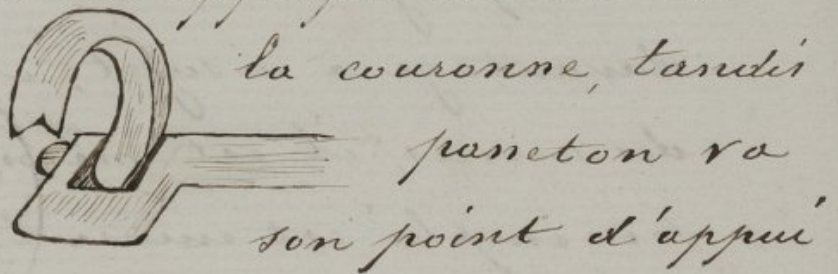 la couronne, tandis
panneton va
son point d'appui